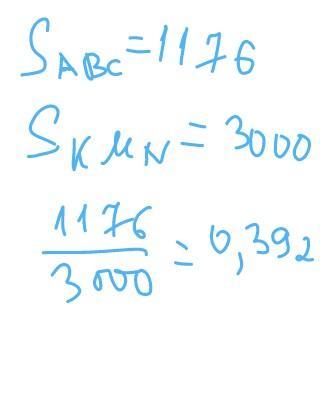 S_ABC = 1176
S_KMN = 3000
1176
3000 = 0,392